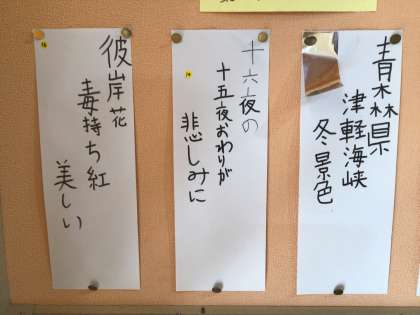 青森県
津軽海峡
冬景色
十六夜の
十五夜おわりが
悲しみに
彼岸花
毒持ち紅
美しい